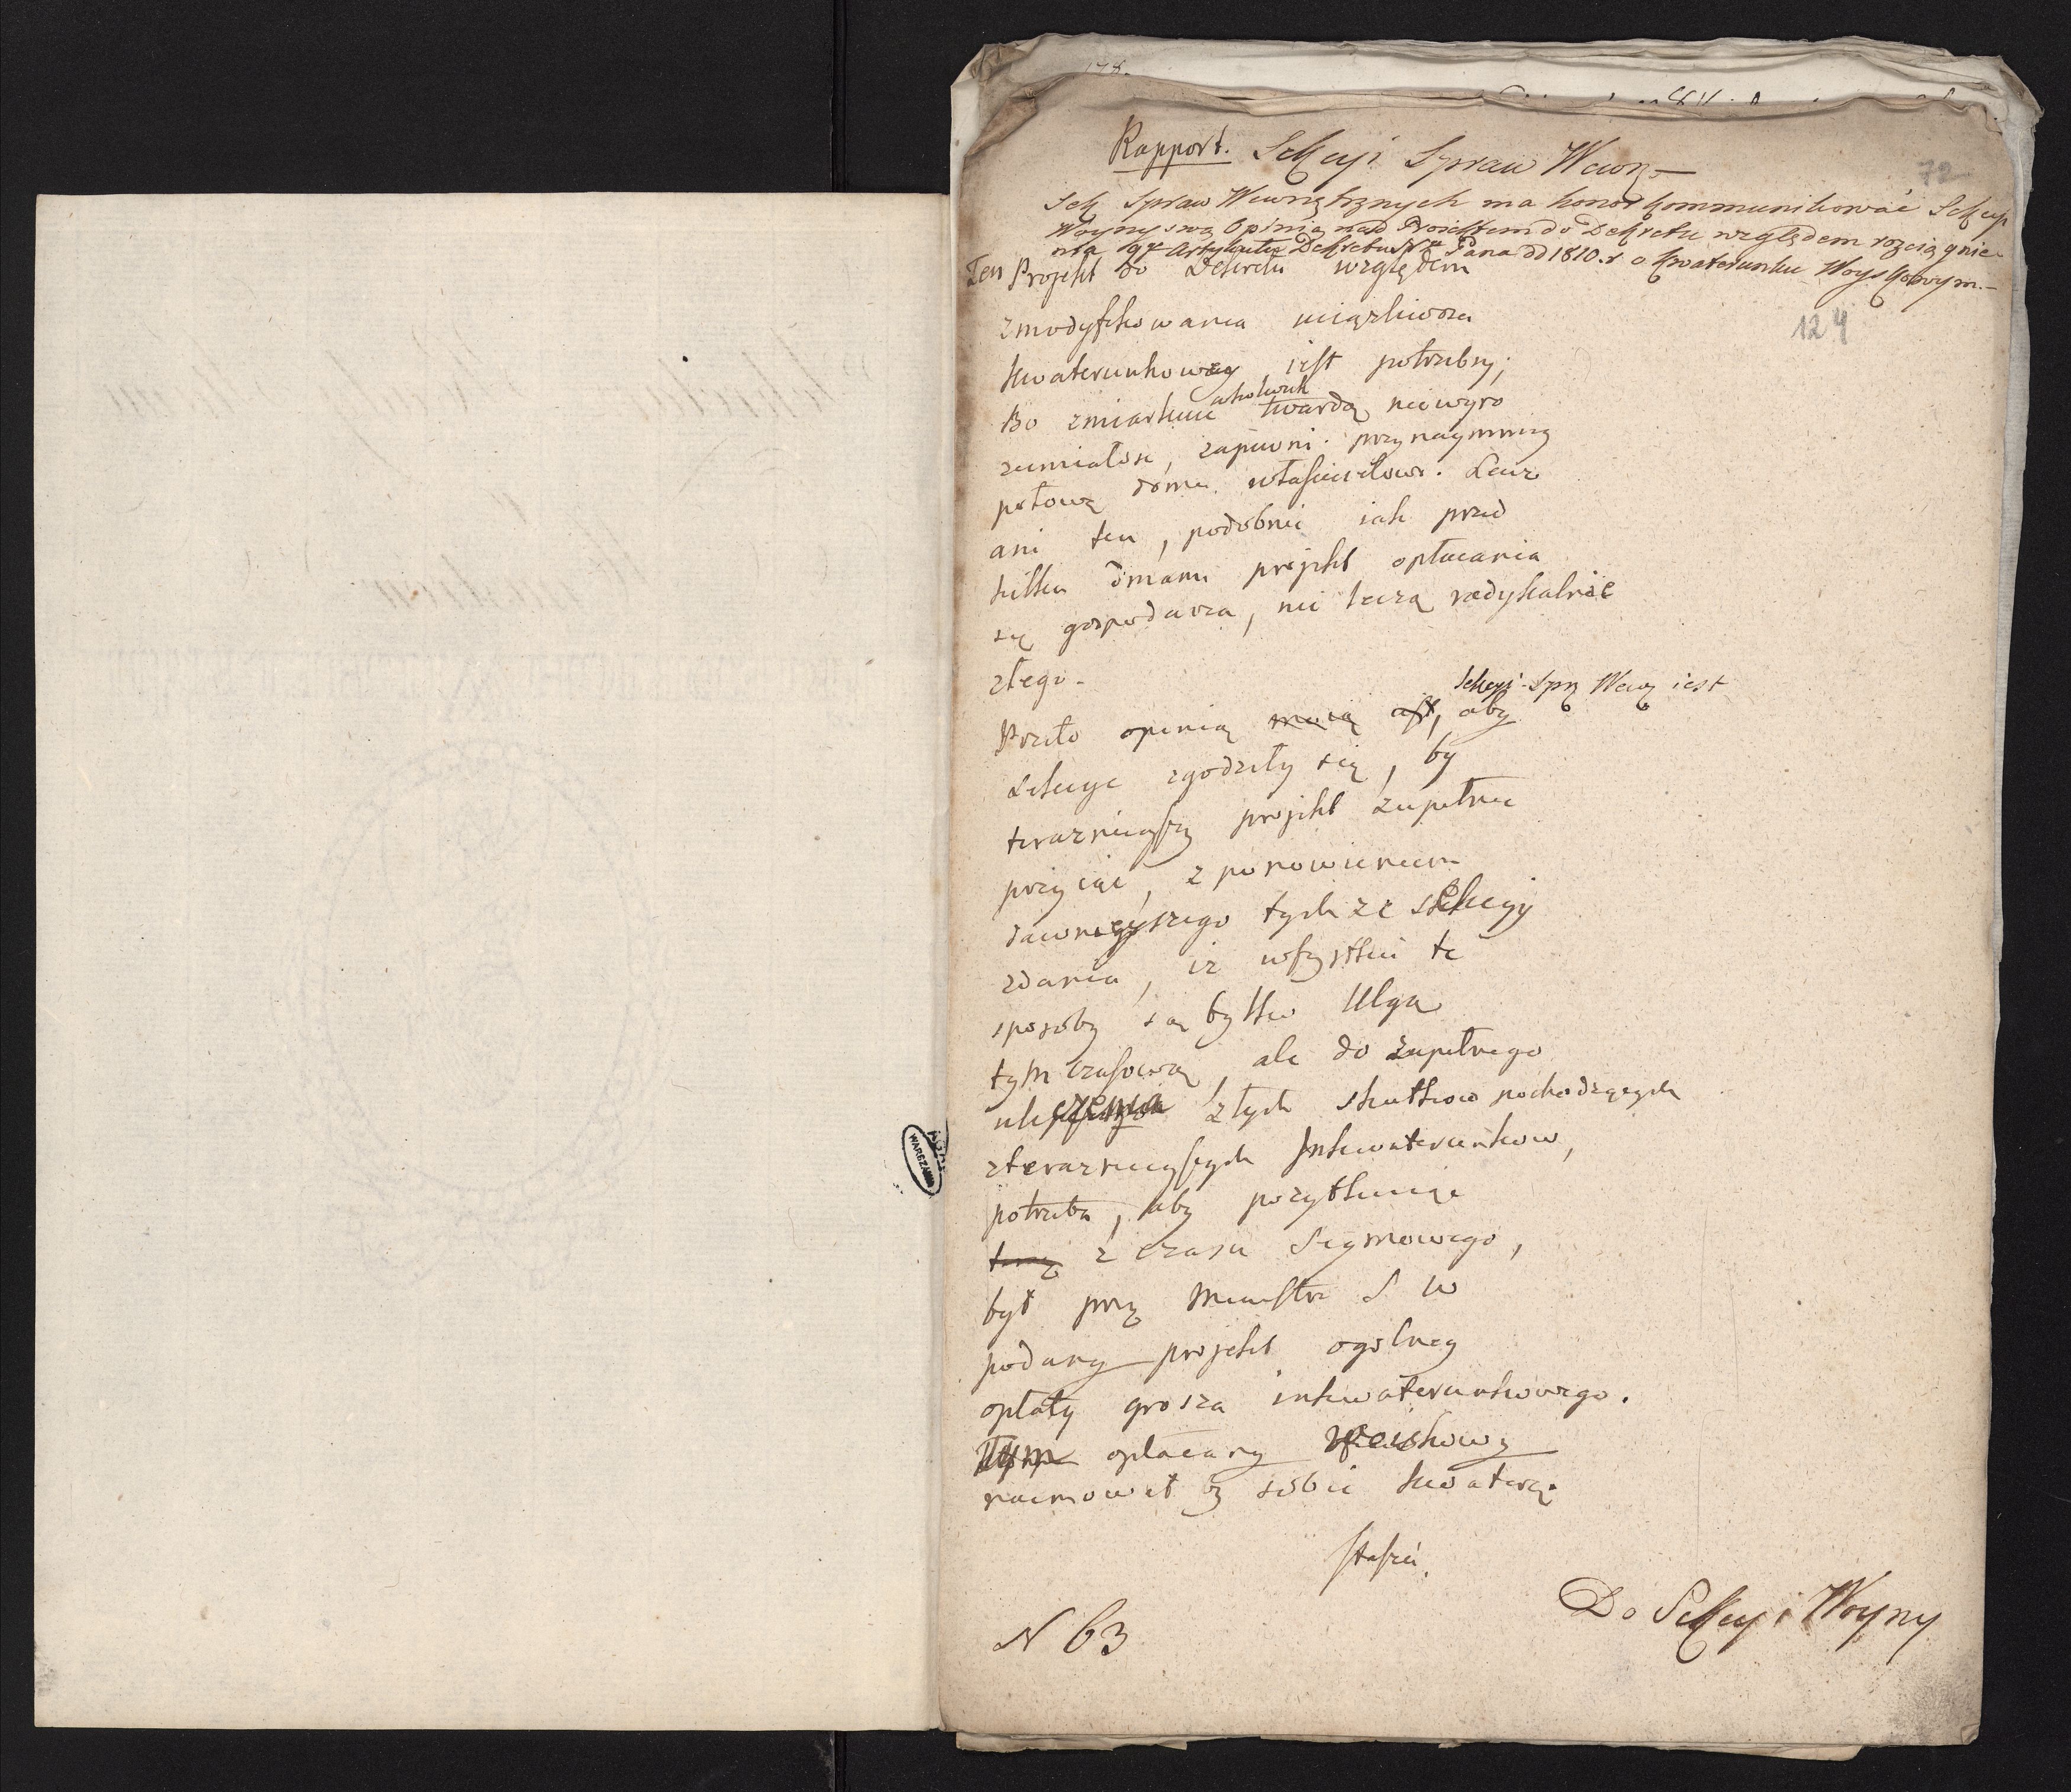 Rapport. Sekcyi Spraw Wewn.
72
Sek Spraw Wewnętrznych ma honor kommunikować Sekcyi
Woyny swą Opinią nad Proiektem do Dekretu względem rozciągnie-
nia 19go Artykułu Dekretu Pana dd 1810.r o kwaterunku Woyskowym.
Ten Projekt do Dekretu względem
124
zmodyfikowania uciążliwosci
kwaterunkowey iest potrzebny;
Bo zmiarkuie twardą niewyro
zumiałość, zapewni przynaymniey
połowę domu właścicielowi. Lecz
ani ten, podobnie iak przed
kilku dniami projekt opłacania
się gospodarza, nie leczą radykalnie
złego.
Sekcyi Spr Wew iest
Przeto opinią moią iest, aby
Sekcye zgodziły się, by
teraznieyszy projekt zupełnie
przyiąć, z ponowieniem
dawnieyszego tychże sekcyy
zdania, iż wszystkie te
sposoby są tylko Ulgą
tymczasową, ale do zupełnego
uleczenia złych skutkow pochodzących
z teraznieyszych Inkwaterunkow,
potrzeba, aby pozytkuiąc
z czasu Seymowego,
był przez Ministra S W
podany projekt ogolney
opłaty grosza inkwaterunkowego.
Tym opłacany woiskowy
naimował by sobie kwaterę.
Staszic.
Do Sekcyi Woyny
N 63
WARSZAWA